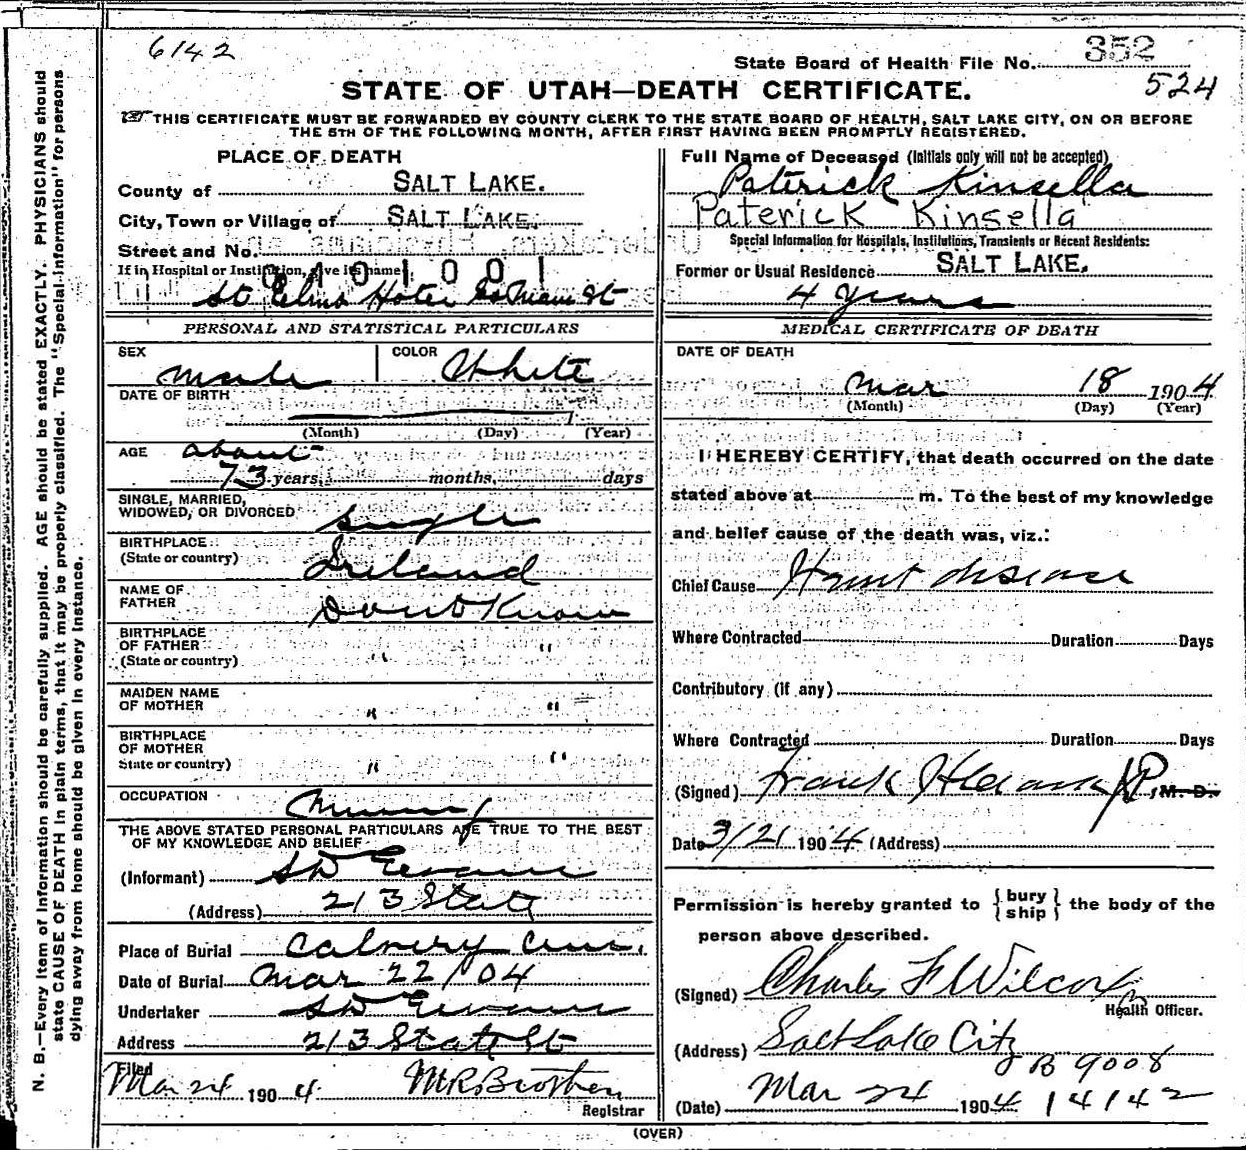 6142
State Board of Health File No. 352
524
STATE OF UTAH—DEATH CERTIFICATE.
THIS CERTIFICATE MUST BE FORWARDED BY COUNTY CLERK TO THE STATE BOARD OF HEALTH, SALT LAKE CITY, ON OR BEFORE
THE 5TH OF THE FOLLOWING MONTH, AFTER FIRST HAVING BEEN PROMPTLY REGISTERED.
N. B.—Every item of information should be carefully supplied. AGE should be stated EXACTLY. PHYSICIANS should
state CAUSE OF DEATH in plain terms, that it may be properly classified. The "Special Information" for persons
dying away from home should be given in every instance.
PLACE OF DEATH
County of SALT LAKE.
City, Town or Village of SALT LAKE.
Street and No.
If in Hospital or Institution, give its name
0401001
St Elmo Hotel So Main St
PERSONAL AND STATISTICAL PARTICULARS
SEX male COLOR White
DATE OF BIRTH
(Month) (Day) (Year)
AGE about
73 years, months, days
SINGLE, MARRIED,
WIDOWED, OR DIVORCED single
BIRTHPLACE
(State or country) Ireland
NAME OF
FATHER Dont Know
BIRTHPLACE
OF FATHER
(State or country) " "
MAIDEN NAME
OF MOTHER " "
BIRTHPLACE
OF MOTHER
State or country) " "
OCCUPATION Mining
THE ABOVE STATED PERSONAL PARTICULARS ARE TRUE TO THE BEST
OF MY KNOWLEDGE AND BELIEF
(Informant) S D Evans
(Address) 213 State
Place of Burial Calvery Cem.
Date of Burial Mar 22/04
Undertaker S D Evans
Address 213 State St
Filed
Mar 24 1904
Registrar
Full Name of Deceased (Initials only will not be accepted)
Paterick Kinsella
Paterick Kinsella
Special Information for Hospitals, Institutions, Transients or Recent Residents:
Former or Usual Residence SALT LAKE.
4 years
MEDICAL CERTIFICATE OF DEATH
DATE OF DEATH
Mar 18 1904
(Month) (Day) (Year)
I HEREBY CERTIFY, that death occurred on the date
stated above at m. To the best of my knowledge
and belief cause of the death was, viz.:
Chief Cause Heart disease
Where Contracted Duration Days
Contributory (if any)
Where Contracted Duration Days
(Signed) Frank JP, M. D.
Date 3/21 1904 (Address)
Permission is hereby granted to { bury
ship } the body of the
person above described.
(Signed) Charles F Wilcox
Health Officer.
(Address) Salt Lake City
B 9008
(Date) Mar 24 1904 14142
(OVER)